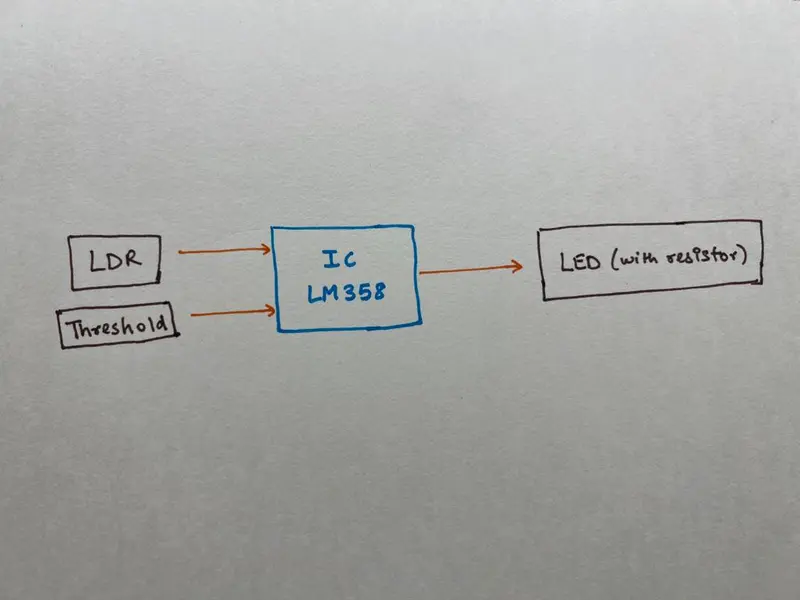 LDR
Threshold
IC
LM358
LED (with resistor)